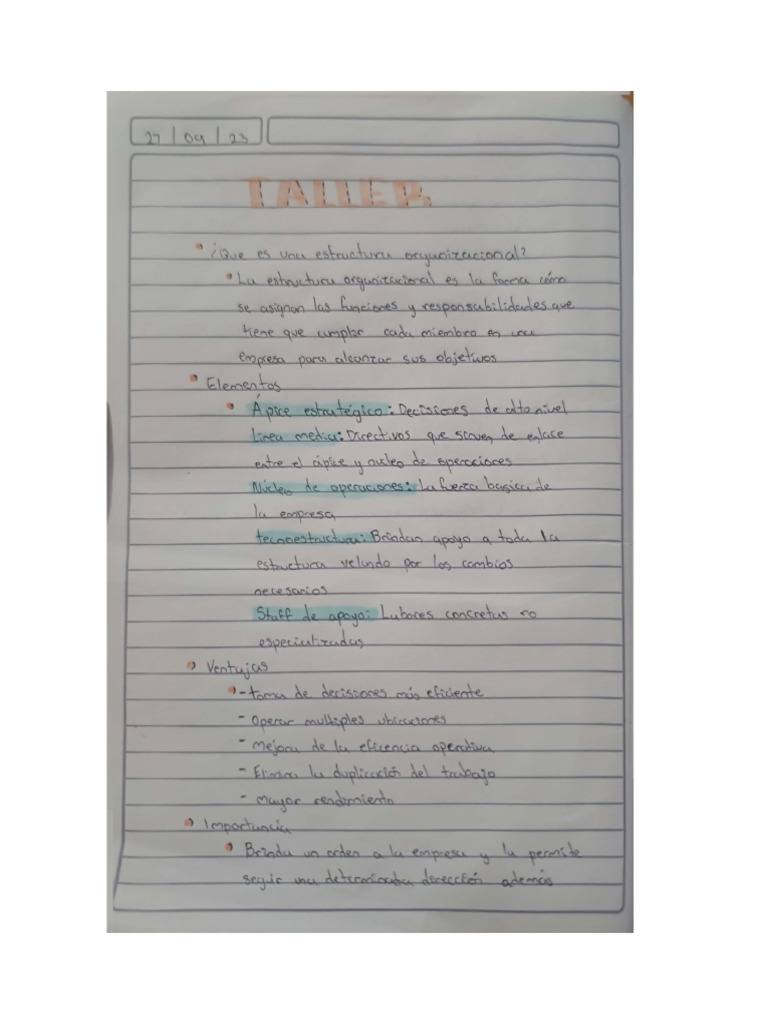 27 / 09 / 23
TALLER
• ¿Que es una estructura organizacional?
• La estructura organizacional es la forma cómo
se asignan las funciones y responsabilidades que
tiene que cumplir cada miembro en una
empresa para alcanzar sus objetivos
• Elementos
• Ápice estratégico: Decisiones de alto nivel
Linea media: Directivos que sirven de enlace
entre el ápice y nucleo de operaciones
Núcleo de operaciones: La fuerza basica de
la empresa
tecnoestructura: Brindan apoyo a toda la
estructura velando por los cambios
necesarios
Staff de apoyo: Labores concretas no
especializadas
• Ventajas
• - toma de decisiones más eficiente
- Operar multiples ubicaciones
- mejora de la eficencia operativa
- Elimina la duplicación del trabajo
- mayor rendimiento
• Importancia
• Brinda un orden a la empresa y la permite
seguir una determinada dirección además